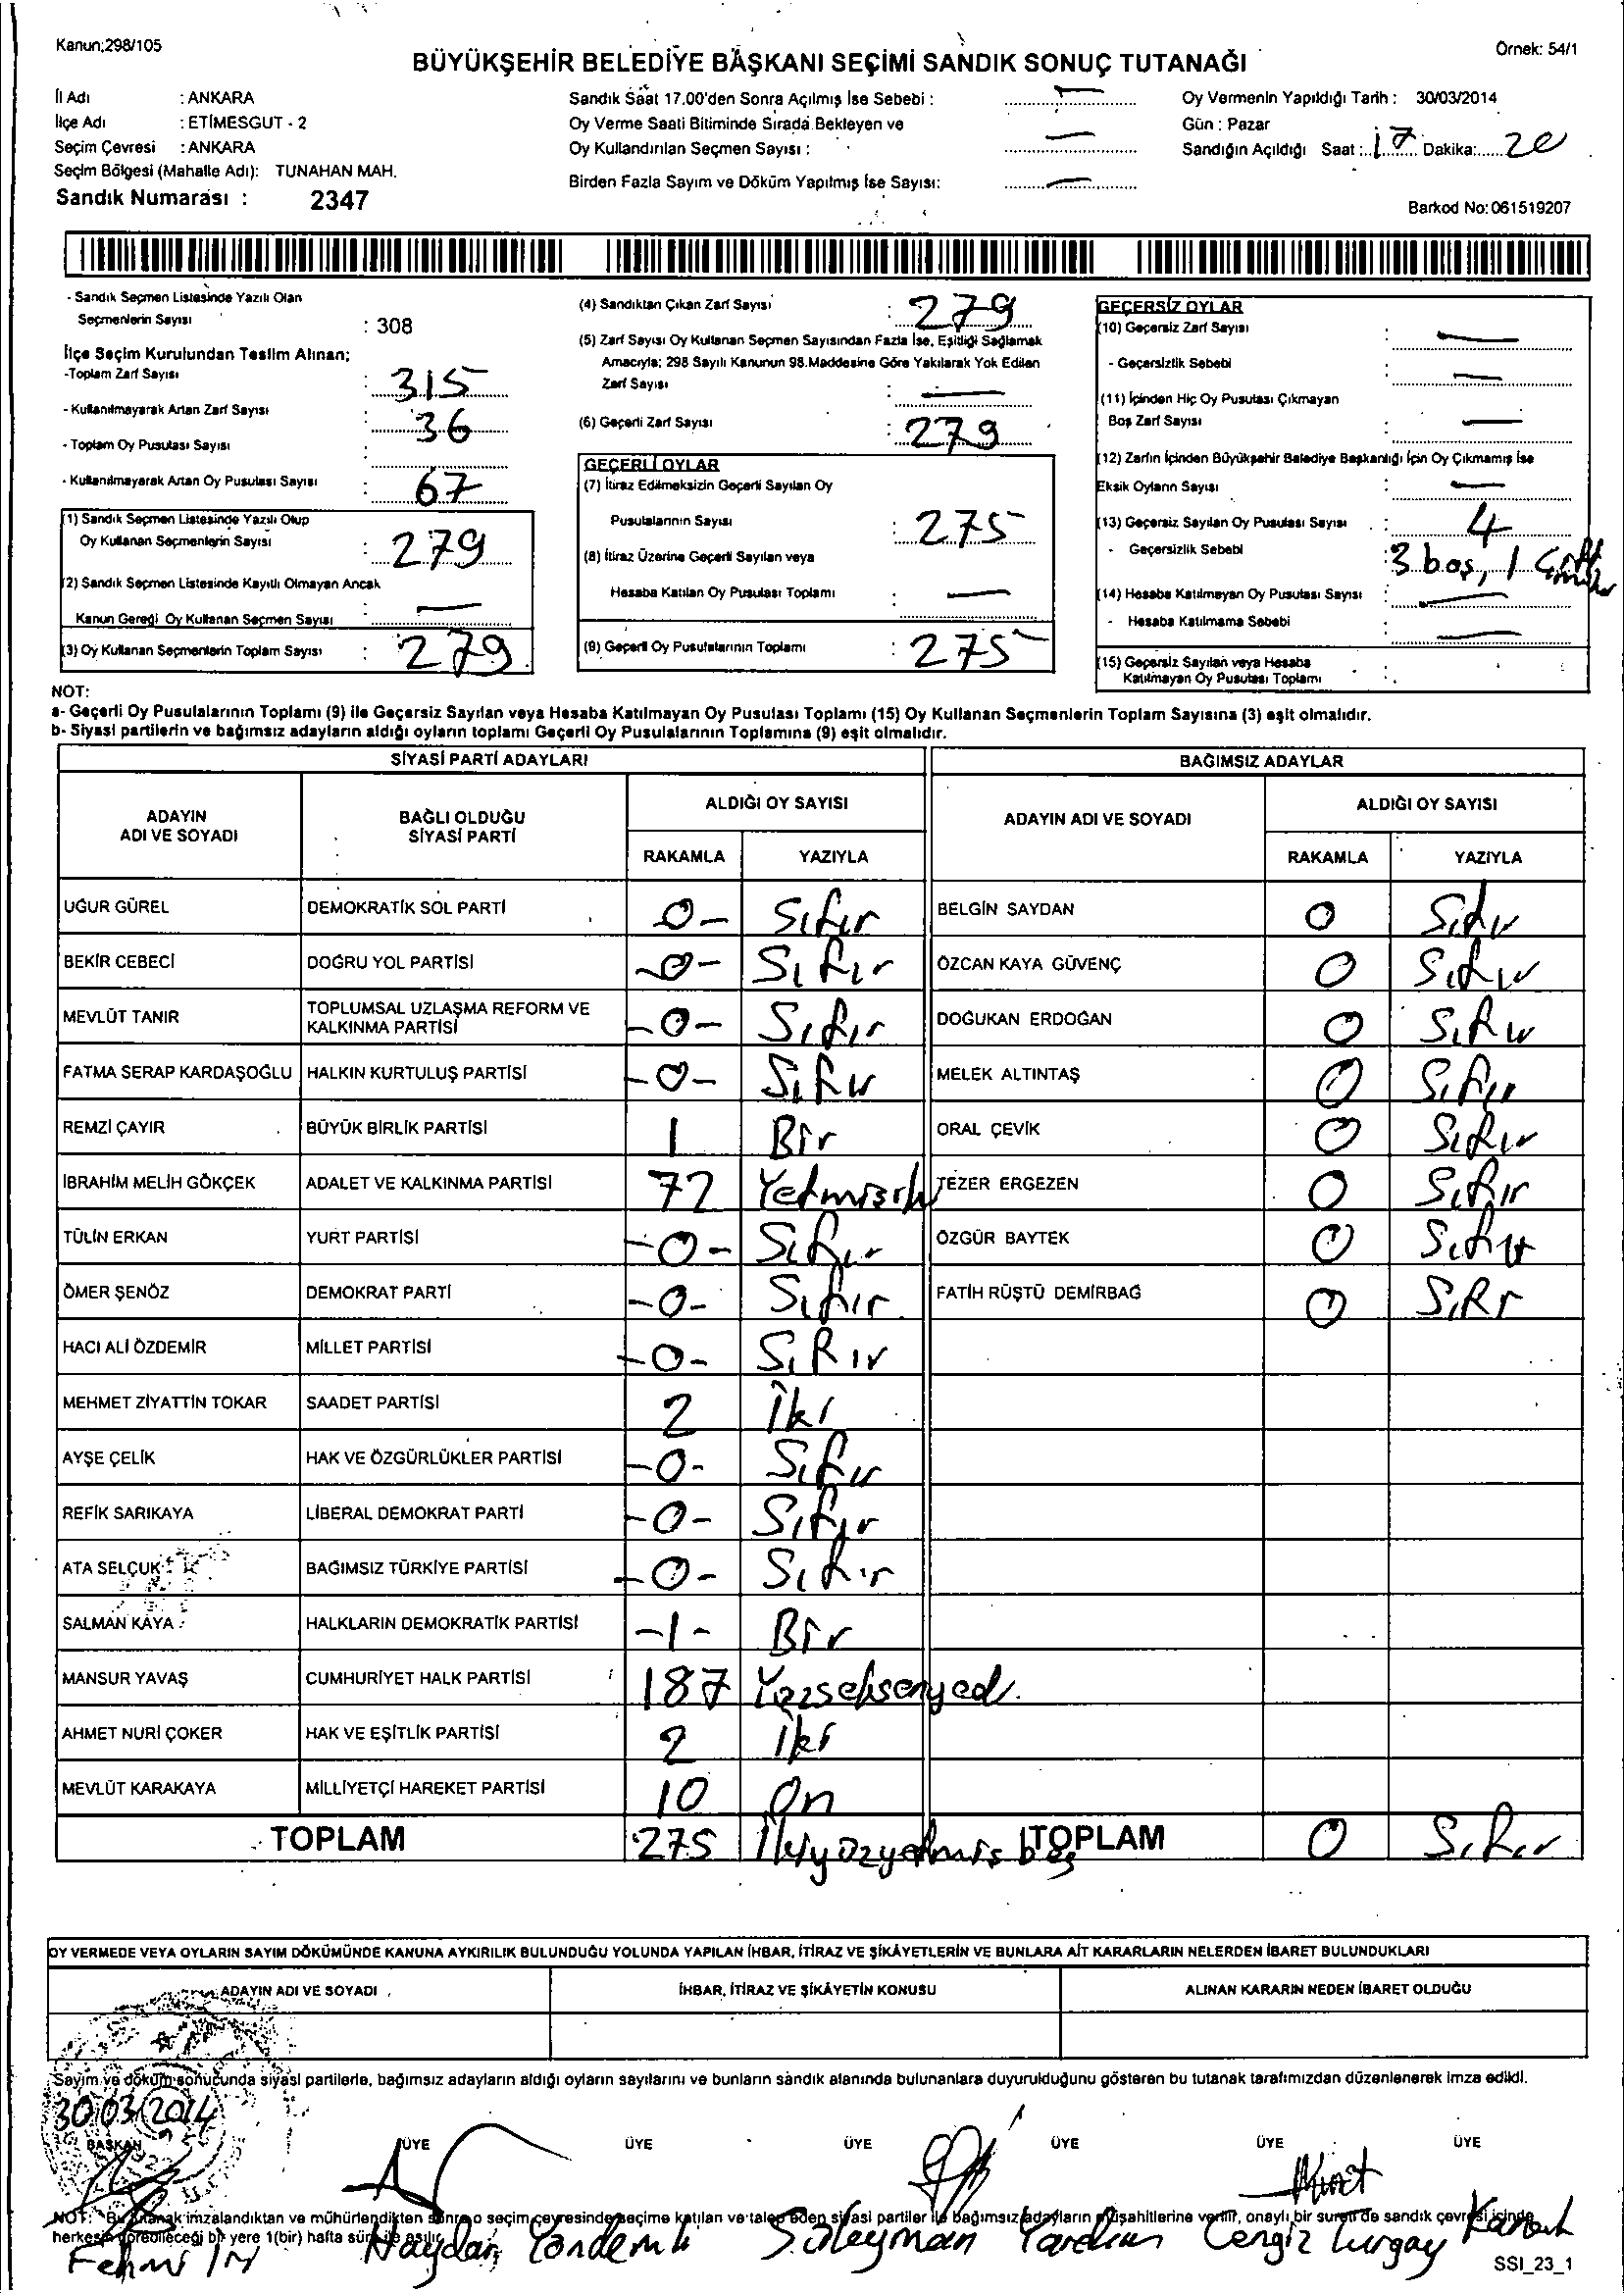 Kanun;298/105
Örnek: 54/1
BÜYÜKŞEHİR BELEDİYE BAŞKANI SEÇİMİ SANDIK SONUÇ TUTANAĞI
İl Adı : ANKARA
İlçe Adı : ETİMESGUT - 2
Seçim Çevresi : ANKARA
Seçim Bölgesi (Mahalle Adı): TUNAHAN MAH.
Sandık Numarası : 2347
Sandık Saat 17.00'den Sonra Açılmış İse Sebebi : —
Oy Verme Saati Bitiminde Sırada Bekleyen ve
Oy Kullandırılan Seçmen Sayısı : —
Birden Fazla Sayım ve Döküm Yapılmış İse Sayısı: —
Oy Vermenin Yapıldığı Tarih : 30/03/2014
Gün : Pazar
Sandığın Açıldığı Saat : 17 Dakika: 20
Barkod No: 061519207
- Sandık Seçmen Listesinde Yazılı Olan
Seçmenlerin Sayısı : 308
İlçe Seçim Kurulundan Teslim Alınan;
-Toplam Zarf Sayısı : 315
- Kullanılmayarak Artan Zarf Sayısı : 36
- Toplam Oy Pusulası Sayısı :
- Kullanılmayarak Artan Oy Pusulası Sayısı : 67
(1) Sandık Seçmen Listesinde Yazılı Olup
Oy Kullanan Seçmenlerin Sayısı : 279
(2) Sandık Seçmen Listesinde Kayıtlı Olmayan Ancak
Kanun Gereği Oy Kullanan Seçmen Sayısı : —
(3) Oy Kullanan Seçmenlerin Toplam Sayısı : 279
(4) Sandıktan Çıkan Zarf Sayısı : 279
(5) Zarf Sayısı Oy Kullanan Seçmen Sayısından Fazla İse, Eşitliği Sağlamak
Amacıyla; 298 Sayılı Kanunun 98.Maddesine Göre Yakılarak Yok Edilen
Zarf Sayısı : —
(6) Geçerli Zarf Sayısı : 279
GEÇERLİ OYLAR
(7) İtiraz Edilmeksizin Geçerli Sayılan Oy
Pusulalarının Sayısı : 275
(8) İtiraz Üzerine Geçerli Sayılan veya
Hesaba Katılan Oy Pusulası Toplamı : —
(9) Geçerli Oy Pusulalarının Toplamı : 275
GEÇERSİZ OYLAR
(10) Geçersiz Zarf Sayısı : —
- Geçersizlik Sebebi : —
(11) İçinden Hiç Oy Pusulası Çıkmayan
Boş Zarf Sayısı : —
(12) Zarfın İçinden Büyükşehir Belediye Başkanlığı İçin Oy Çıkmamış İse
Eksik Oyların Sayısı : —
(13) Geçersiz Sayılan Oy Pusulası Sayısı : 4
- Geçersizlik Sebebi : 3 boş, 1 Çift mühür
(14) Hesaba Katılmayan Oy Pusulası Sayısı : —
- Hesaba Katılmama Sebebi : —
(15) Geçersiz Sayılan veya Hesaba
Katılmayan Oy Pusulası Toplamı :
NOT:
a- Geçerli Oy Pusulalarının Toplamı (9) ile Geçersiz Sayılan veya Hesaba Katılmayan Oy Pusulası Toplamı (15) Oy Kullanan Seçmenlerin Toplam Sayısına (3) eşit olmalıdır.
b- Siyasi partilerin ve bağımsız adayların aldığı oyların toplamı Geçerli Oy Pusulalarının Toplamına (9) eşit olmalıdır.
SİYASİ PARTİ ADAYLARI BAĞIMSIZ ADAYLAR
ADAYIN ADI VE SOYADI BAĞLI OLDUĞU SİYASİ PARTİ ALDIĞI OY SAYISI ADAYIN ADI VE SOYADI ALDIĞI OY SAYISI
RAKAMLA YAZIYLA RAKAMLA YAZIYLA
UĞUR GÜREL DEMOKRATİK SOL PARTİ -0- Sıfır BELGİN SAYDAN 0 Sıfır
BEKİR CEBECİ DOĞRU YOL PARTİSİ -0- Sıfır ÖZCAN KAYA GÜVENÇ 0 Sıfır
MEVLÜT TANIR TOPLUMSAL UZLAŞMA REFORM VE KALKINMA PARTİSİ -0- Sıfır DOĞUKAN ERDOĞAN 0 Sıfır
FATMA SERAP KARDAŞOĞLU HALKIN KURTULUŞ PARTİSİ -0- Sıfır MELEK ALTINTAŞ 0 Sıfır
REMZİ ÇAYIR BÜYÜK BİRLİK PARTİSİ 1 Bir ORAL ÇEVİK 0 Sıfır
İBRAHİM MELİH GÖKÇEK ADALET VE KALKINMA PARTİSİ 72 Yetmişiki TEZER ERGEZEN 0 Sıfır
TÜLİN ERKAN YURT PARTİSİ -0- Sıfır ÖZGÜR BAYTEK 0 Sıfır
ÖMER ŞENÖZ DEMOKRAT PARTİ -0- Sıfır FATİH RÜŞTÜ DEMİRBAĞ 0 Sıfır
HACI ALİ ÖZDEMİR MİLLET PARTİSİ -0- Sıfır
MEHMET ZİYATTİN TOKAR SAADET PARTİSİ 2 İki
AYŞE ÇELİK HAK VE ÖZGÜRLÜKLER PARTİSİ -0- Sıfır
REFİK SARIKAYA LİBERAL DEMOKRAT PARTİ -0- Sıfır
ATA SELÇUK BAĞIMSIZ TÜRKİYE PARTİSİ -0- Sıfır
SALMAN KAYA HALKLARIN DEMOKRATİK PARTİSİ -1- Bir
MANSUR YAVAŞ CUMHURİYET HALK PARTİSİ 187 Yüzseksenyedi.
AHMET NURİ ÇOKER HAK VE EŞİTLİK PARTİSİ 2 İki
MEVLÜT KARAKAYA MİLLİYETÇİ HAREKET PARTİSİ 10 On
TOPLAM 275 İkiyüzyetmiş beş TOPLAM 0 Sıfır
OY VERMEDE VEYA OYLARIN SAYIM DÖKÜMÜNDE KANUNA AYKIRILIK BULUNDUĞU YOLUNDA YAPILAN İHBAR, İTİRAZ VE ŞİKÂYETLERİN VE BUNLARA AİT KARARLARIN NELERDEN İBARET BULUNDUKLARI
ADAYIN ADI VE SOYADI İHBAR, İTİRAZ VE ŞİKÂYETİN KONUSU ALINAN KARARIN NEDEN İBARET OLDUĞU
Sayım ve döküm sonucunda siyasi partilerle, bağımsız adayların aldığı oyların sayılarını ve bunların sandık alanında bulunanlara duyurulduğunu gösteren bu tutanak tarafımızdan düzenlenerek imza edildi.
30/03/2014
BAŞKAN ÜYE ÜYE ÜYE ÜYE ÜYE ÜYE
NOT: Bu tutanak imzalandıktan ve mühürlendikten sonra o seçim çevresinde seçime katılan ve talep eden siyasi partiler ile bağımsız adayların müşahitlerine verilir, onaylı bir sureti de sandık çevresi içinde
herkesin görebileceği bir yere 1(bir) hafta süre ile asılır.
Fehmi Haydar Yöndemli Süleyman Yardım Cengiz Turgay
SSI_23_1